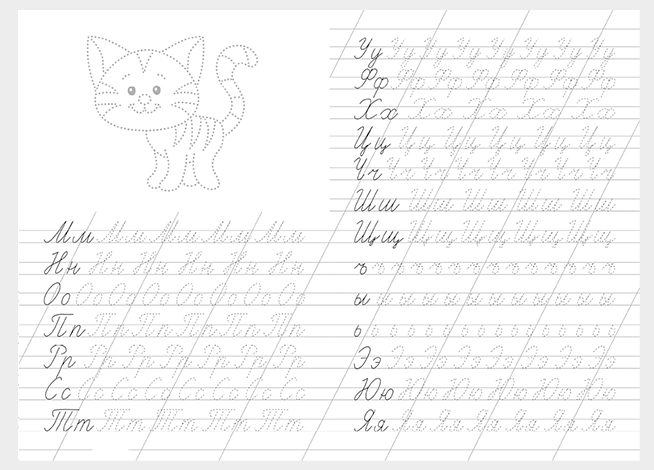 Мм Мм Мм Мм Мм
Нн Нн Нн Нн Нн Нн
Оо Оо Оо Оо Оо Оо Оо Оо
Пп Пп Пп Пп Пп Пп
Рр Рр Рр Рр Рр Рр Рр
Сс Сс Сс Сс Сс Сс Сс Сс
Тт Тт Тт Тт Тт
Уу Уу Уу Уу Уу Уу Уу Уу
Фф Фф Фф Фф Фф Фф Фф
Хх Хх Хх Хх Хх
Цц Цц Цц Цц Цц Цц Цц Цц
Чч Чч Чч Чч Чч Чч Чч Чч
Шш Шш Шш Шш Шш
Щщ Щщ Щщ Щщ Щщ Щщ
ъ ъ ъ ъ ъ ъ ъ ъ ъ ъ ъ ъ ъ ъ
ы ы ы ы ы ы ы ы ы ы ы ы ы
ь ь ь ь ь ь ь ь ь ь ь ь ь ь ь ь
Ээ Ээ Ээ Ээ Ээ Ээ Ээ Ээ
Юю Юю Юю Юю Юю Юю Юю
Яя Яя Яя Яя Яя Яя Яя